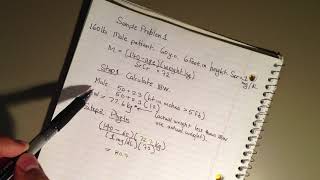 Sample Problem 1
160lb Male patient 60 y.o. 6 feet in height Scr=1
M = (140-age)(weight/kg)
Scr • 72
Step 1 Calculate IBW.
Male 50+2.3 (ht in inches >5ft)
50+2.3 (12)
= 77.6 kg (actual weight less than
use actual weight).
Step 2 Plugin
(140-60)(72.7kg)
(1mg/dL)(72)
= 80.7